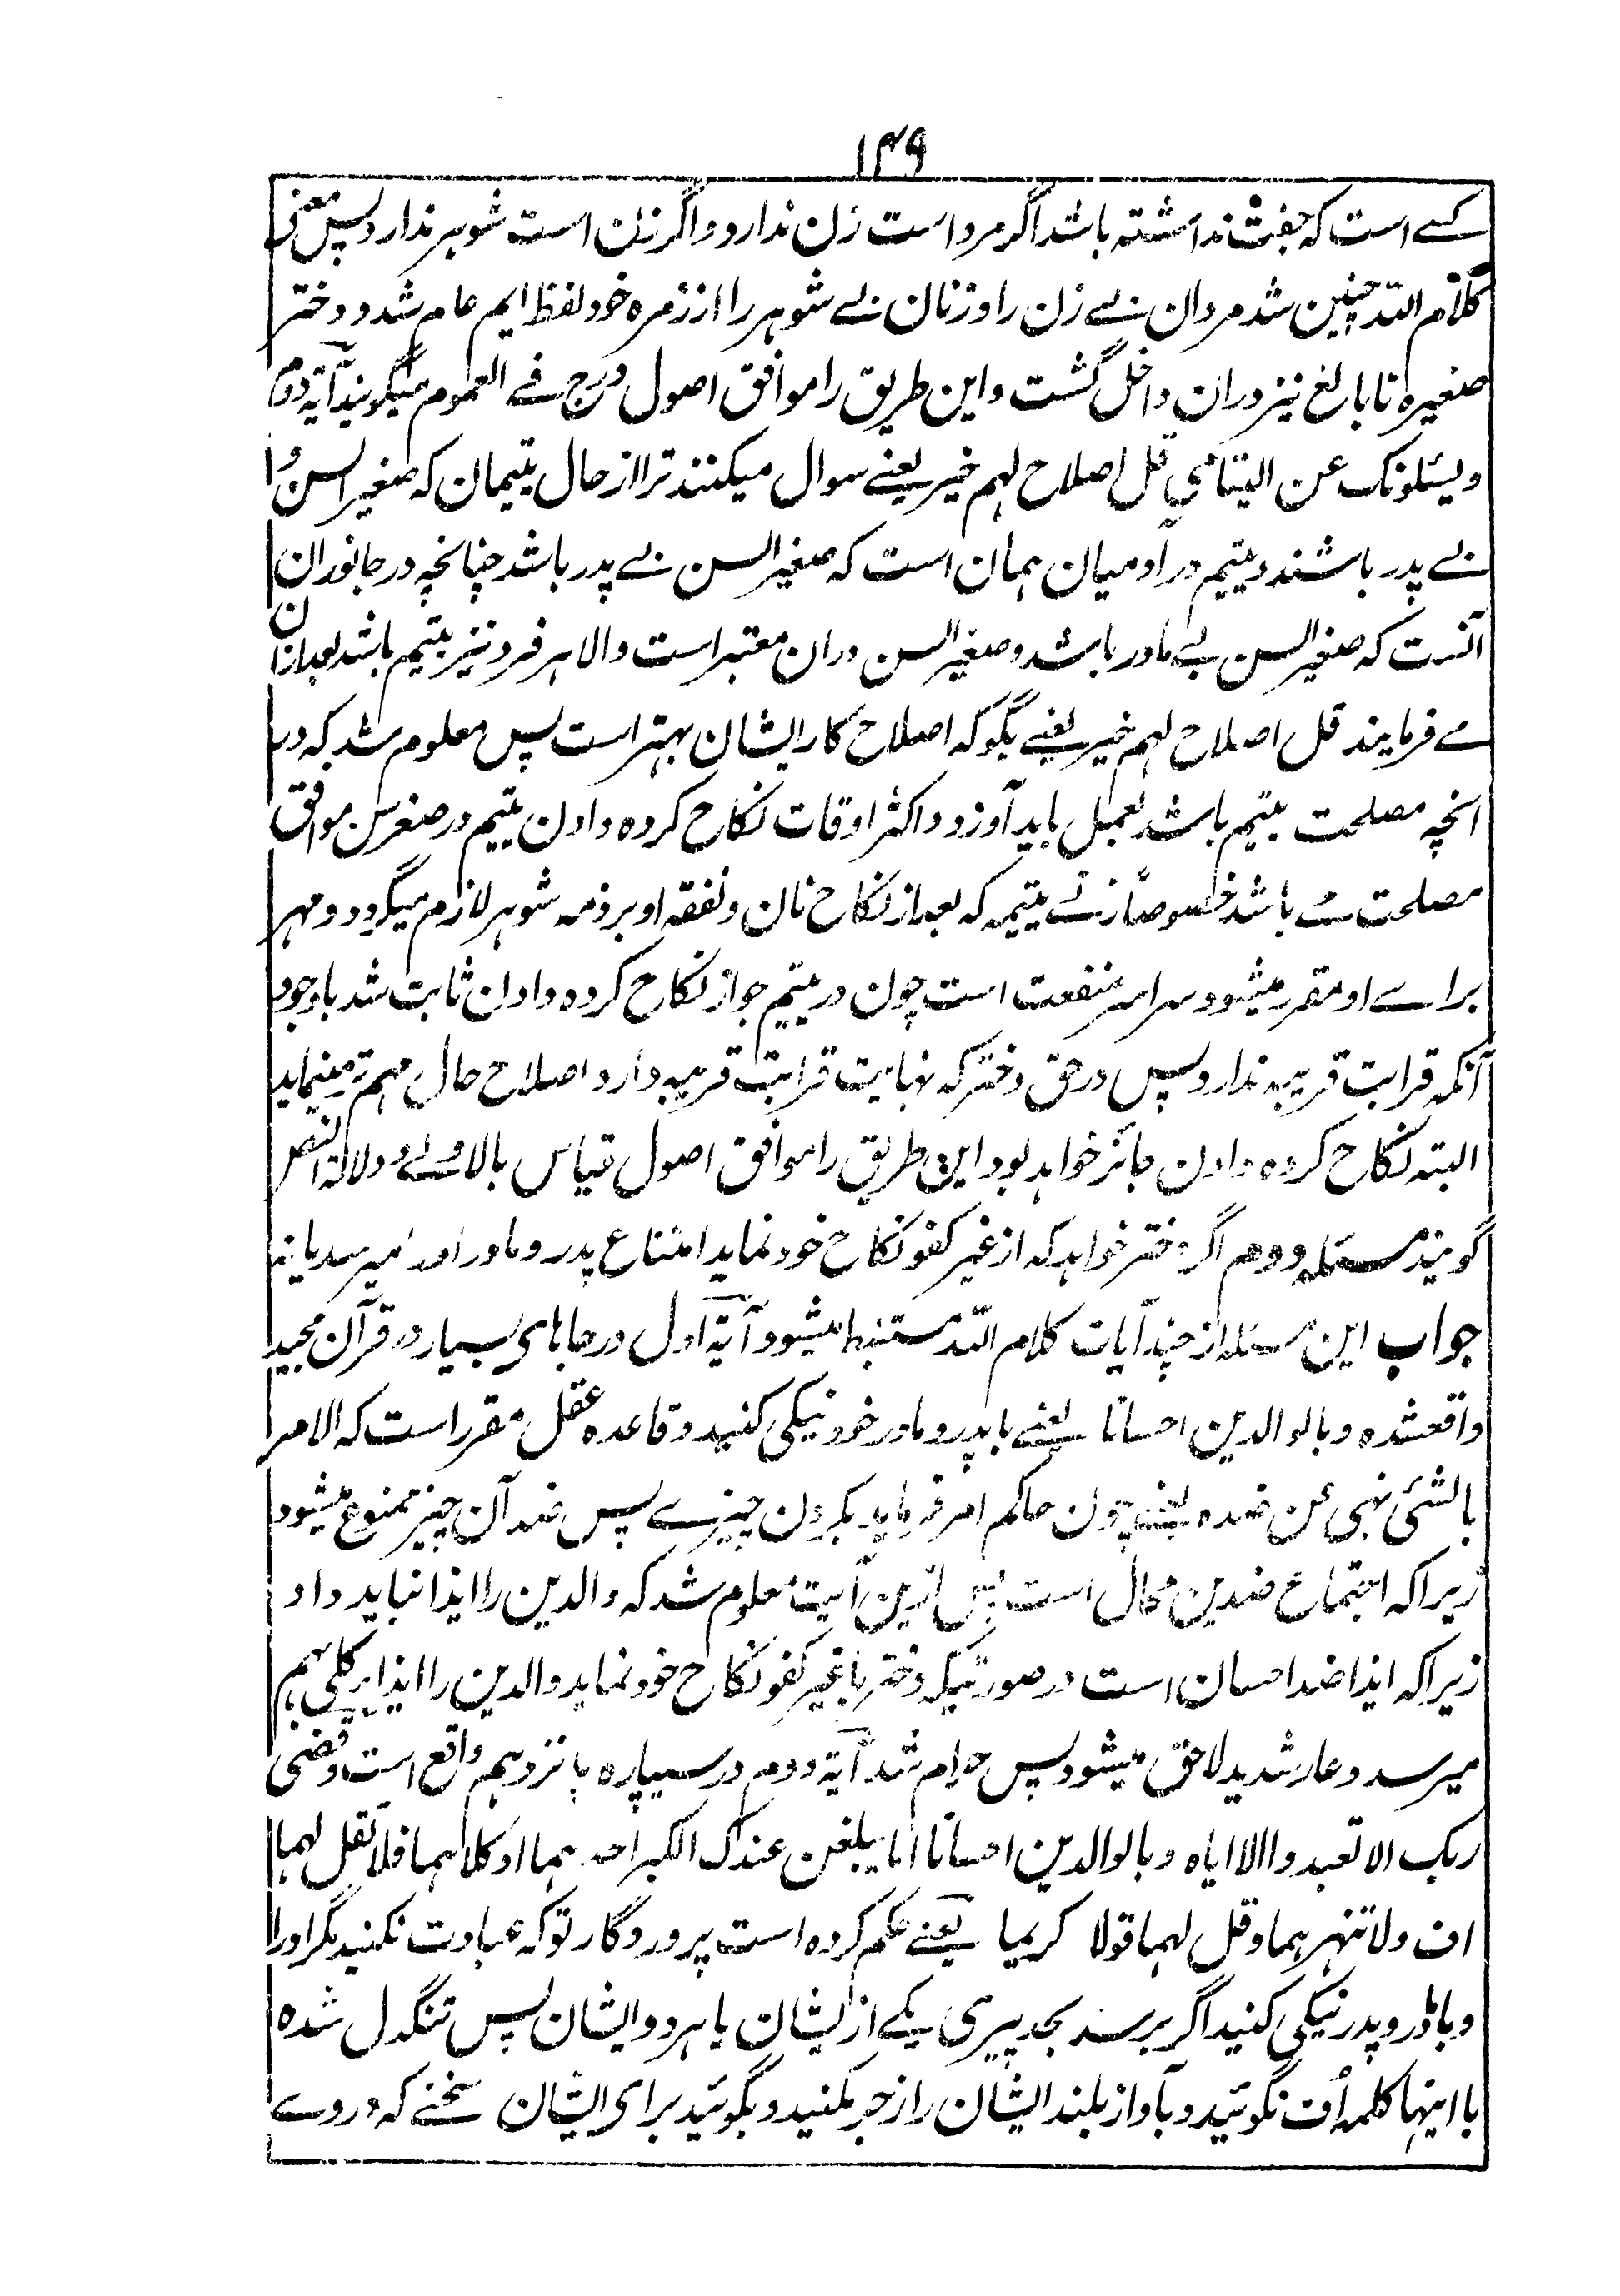 ۱۴۹
کسے است که جفت نداشته باشد اگر مرد است زن ندارد و اگر زن است شوهر ندارد پس معنی
کلام الله چنین شد مردان بے زن را و زنان بے شوهر را از زمره خود لفظ ایم عام شد و دختر
صغیره نابالغ نیز دران داخل گشت و این طریق را موافق اصول درج فے العموم میگویند آیة دوم
ویسئلونک عن الیتامی قل اصلاح لهم خیر یعنے سوال میکنند ترا از حال یتیمان که صغیر السن و
بے پدر باشند و یتیم در آدمیان همان است که صغیر السن بے پدر باشد چنانچه در جانوران
آنست که صغیر السن بے مادر باشد و صغیر السن دران معتبر است و الا هر فرد نیز یتیم باشد بعد ازان
مے فرمایند قل اصلاح لهم خیر یعنے بگو که اصلاح کار ایشان بهتر است پس معلوم شد که در
انچه مصلحت یتیم باشد بعمل باید آورد و اکثر اوقات نکاح کرده دادن یتیم در صغر سن موافق
مصلحت مے باشد خصوصاً زنے یتیمه که بعد از نکاح نان و نفقه او بر ذمه شوهر لازم میگردد و مهر
براے او مقرر میشود سراسر منفعت است چون در یتیم جواز نکاح کرده دادن ثابت شد باوجود
آنکه قرابت قریبه ندارد پس در حق دختر که نهایت قرابت قریبه دارد اصلاح حال مهم تر مینماید
البته نکاح کرده دادن جائز خواهد بود این طریق را موافق اصول قیاس بالاولے و دلالة النص
گویند مسئله دوم اگر دختر خواهد که از غیر کفو نکاح خود نماید امتناع پدر و مادر او را میرسد یا نه
جواب این مسئله از چند آیات کلام الله مستنبط میشود آیة اول در جاهای بسیار در قرآن مجید
واقعشده وبالوالدین احسانا یعنے با پدر و مادر خود نیکی کنید و قاعده عقل مقرر است که الامر
بالشئی نهی عن ضده یعنے چون حاکم امر فرماید بکردن چیزے پس ضد آن چیز ممنوع میشود
زیرا که اجتماع ضدین محال است پس ازین آیت معلوم شد که والدین را ایذا نباید داد
زیرا که ایذا ضد احسان است در صورتیکه دختر با غیر کفو نکاح خود نماید والدین را ایذاے کلی هم
میرسد و عار شدید لاحق میشود پس حرام شد آیة دوم در سیپاره پانزدهم واقع است وقضی
ربک الا تعبدوا الا ایاه وبالوالدین احسانا اما یبلغن عندک الکبر احدهما او کلاهما فلا تقل لهما
اف ولا تنهرهما وقل لهما قولا کریما یعنے حکم کرده است پروردگار تو که عبادت نکنید مگر او را
و با مادر و پدر نیکی کنید اگر برسند بحد پیری یکے از ایشان یا هر دو ایشان پس تنگدل شده
با اینها کلمه اُف نگوئید و بآواز بلند ایشان را زجر نکنید و بگوئید برای ایشان سخنے که در وے